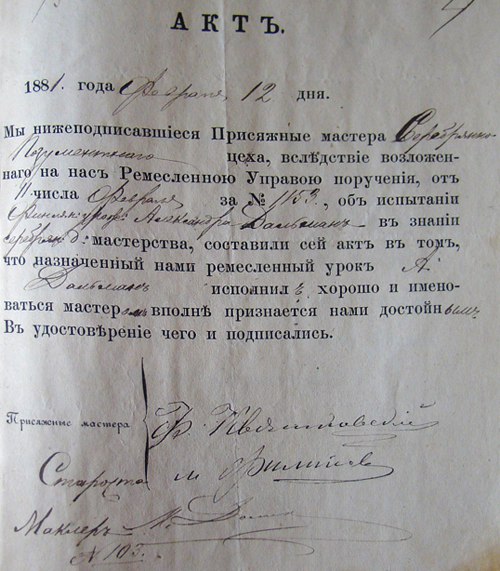 АКТЪ.
1881. года Февраля 12 дня.
Мы нижеподписавшіеся Присяжные мастера Серебрянно-
Позументнаго цеха, вслѣдствіе возложен-
наго на насъ Ремесленною Управою порученія, отъ
11 числа Февраля за № 1153, объ испытаніи
Александра Дальманъ въ знаніи
серебрян д: мастерства, составили сей актъ въ томъ,
что назначенный нами ремесленный урокъ А.
Дальманъ исполнилъ хорошо и имено-
ваться мастеромъ вполнѣ признается нами достойнымъ
Въ удостовѣреніе чего и подписались.
Присяжные мастера
Ф.
Староста М. Филиповъ
Маклеръ
№ 103.